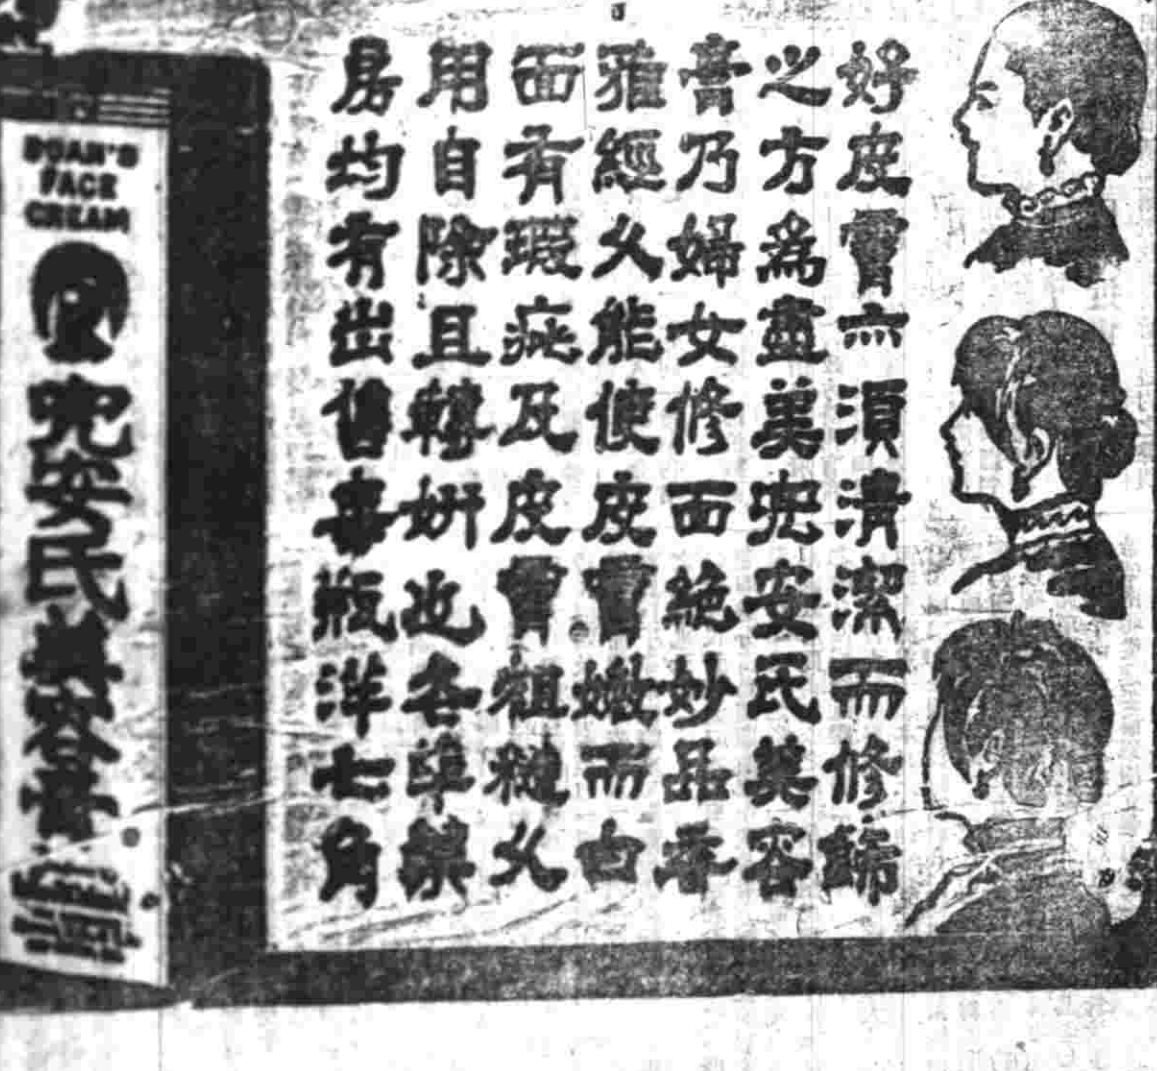 好皮膚亦須清潔而修飾
之方為盡美兜安氏美容
膏乃婦女修面絕妙品香
雅經久能使皮膚嫩而白
面有瑕疵及皮膚粗糙久
用自除且轉妍也各埠藥
房均有出售每瓶洋七角
DOAN'S
FACE
CREAM
兜安氏美容膏